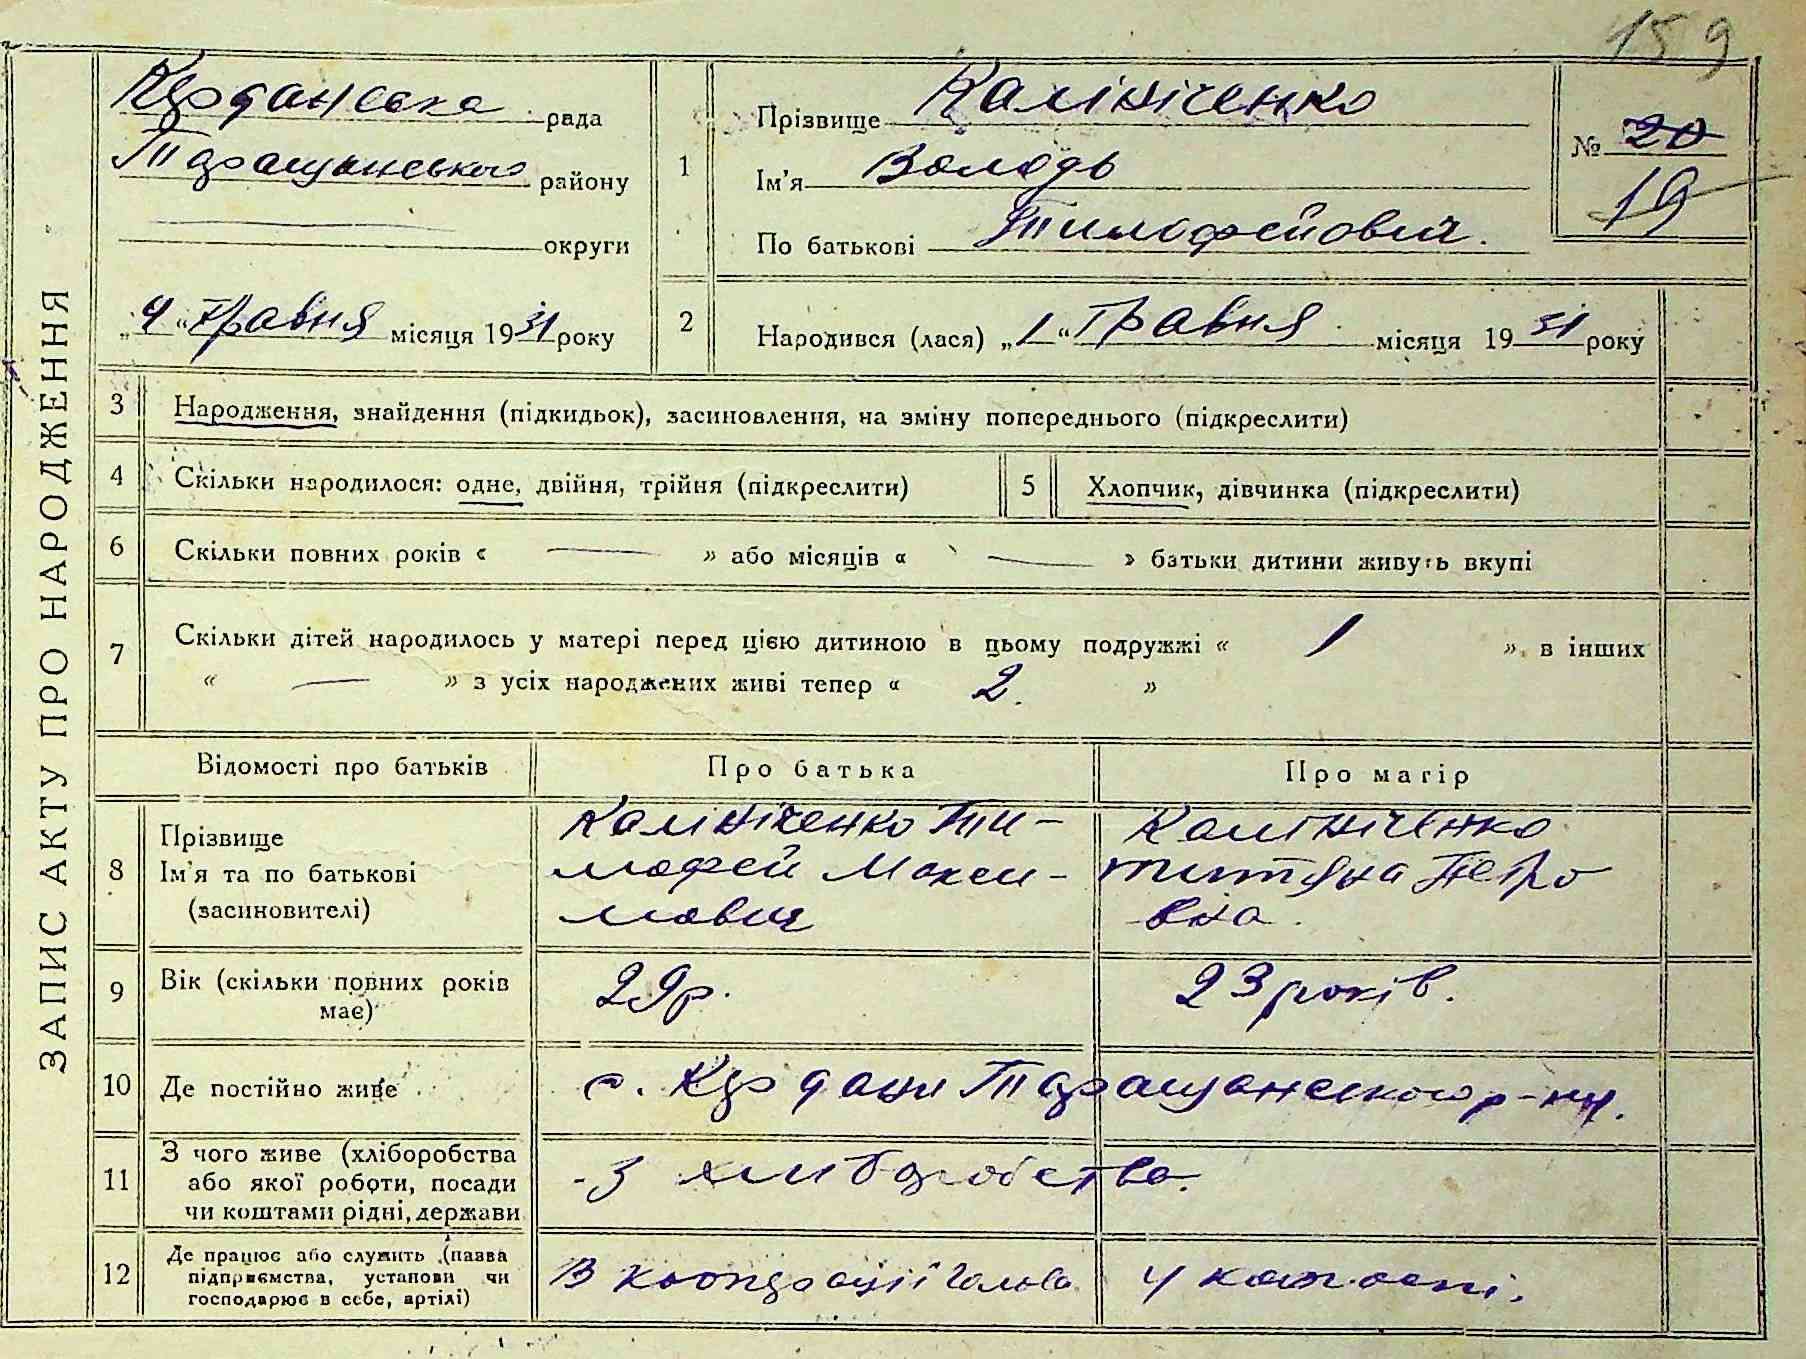 159
ЗАПИС АКТУ ПРО НАРОДЖЕННЯ
Кердансько рада
Таращанського району
округи
„4“ травня місяця 1931 року
1
Прізвище Калініченко
Ім'я Володь
По батькові Тимофейович.
№ 20
19
2
Народився (лася) „1“ травня місяця 1931 року
3
Народження, знайдення (підкидьок), засиновлення, на зміну попереднього (підкреслити)
4 Скільки народилося: одне, двійня, трійня (підкреслити)
5 Хлопчик, дівчинка (підкреслити)
6 Скільки повних років « — » або місяців « — » батьки дитини живуть вкупі
7 Скільки дітей народилось у матері перед цією дитиною в цьому подружжі « 1 », в інших
« — » з усіх народжених живі тепер « 2. »
Відомості про батьків
Про батька
Про матір
8
Прізвище
Ім'я та по батькові
(засиновителі)
Калініченко Ти-
мофей Макси-
мович
Калініченко
Титяна Петро
вна.
9
Вік (скільки повних років
має)
29 р.
23 років.
10 Де постійно живе
с. Кердани Таращанського р-ну.
11
З чого живе (хліборобства
або якої роботи, посади
чи коштами рідні, держави
З хлиборобства.
12
Де працює або служить (назва
підприємства, установи чи
господарює в себе, артілі)
В кооперації голова
У колгоспі.